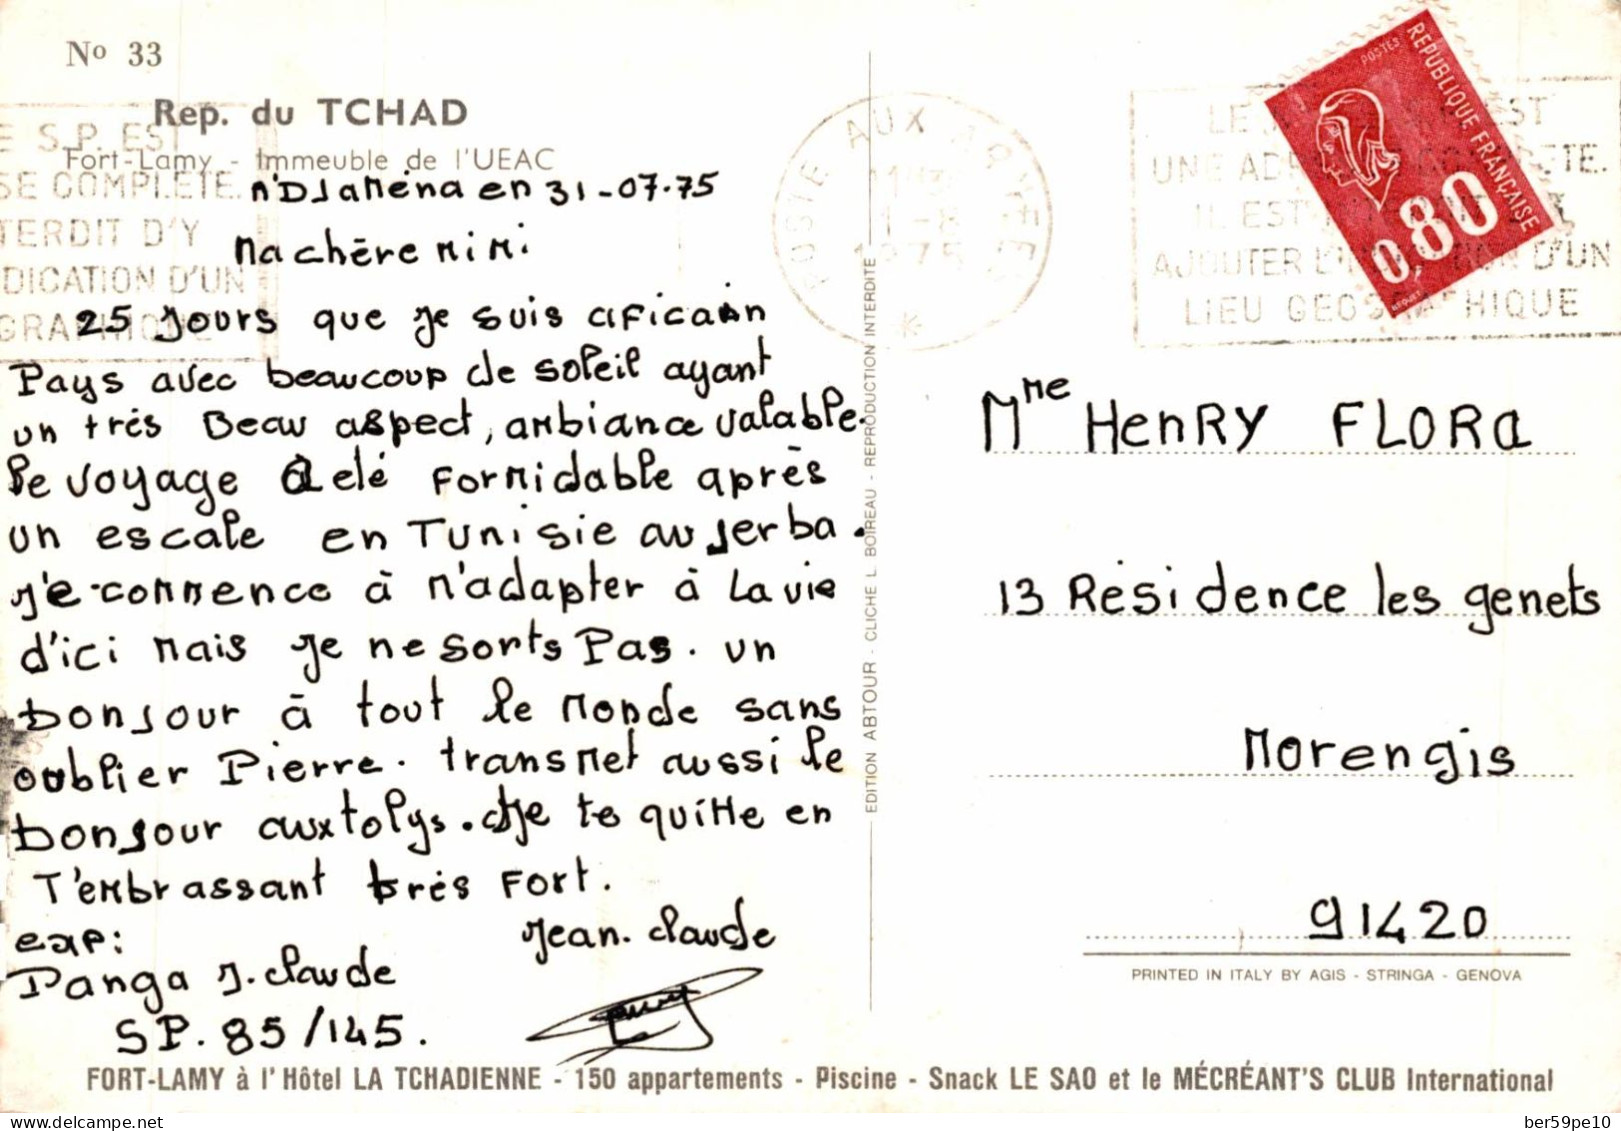 No 33
Rep. du TCHAD
Fort-Lamy - Immeuble de l'UEAC
n'DJaména en 31-07-75
Ma chère Mimi
25 jours que je suis africain
Pays avec beaucoup de soleil ayant
un très Beau aspect, ambiance valable.
le voyage a elé formidable après
un escale en Tunisie au Jerba.
je commence à m'adapter à la vie
d'ici mais je ne sorts Pas. un
bonjour à tout le monde sans
oublier Pierre. transmet aussi le
bonjour aux tolys. Je te quitte en
T'embrassant très fort.
Jean. claude
exp:
Panga J. claude
SP. 85/145.
EDITION ABTOUR - CLICHE L. BOIREAU - REPRODUCTION INTERDITE
POSTE AUX ARMÉES
1-8
1975
LE S.P. EST
UNE ADRESSE COMPLETE.
IL EST INTERDIT D'Y
AJOUTER L'INDICATION D'UN
LIEU GEOGRAPHIQUE
E S.P. EST
SE COMPLETE.
TERDIT D'Y
DICATION D'UN
GRAPHIQUE
POSTES
REPUBLIQUE FRANÇAISE
0,80
BEQUET
Mme Henry FLORA
13 Résidence les genets
Morengis
91420
PRINTED IN ITALY BY AGIS - STRINGA - GENOVA
FORT-LAMY à l'Hôtel LA TCHADIENNE - 150 appartements - Piscine - Snack LE SAO et le MÉCRÉANT'S CLUB International
ber59pe10